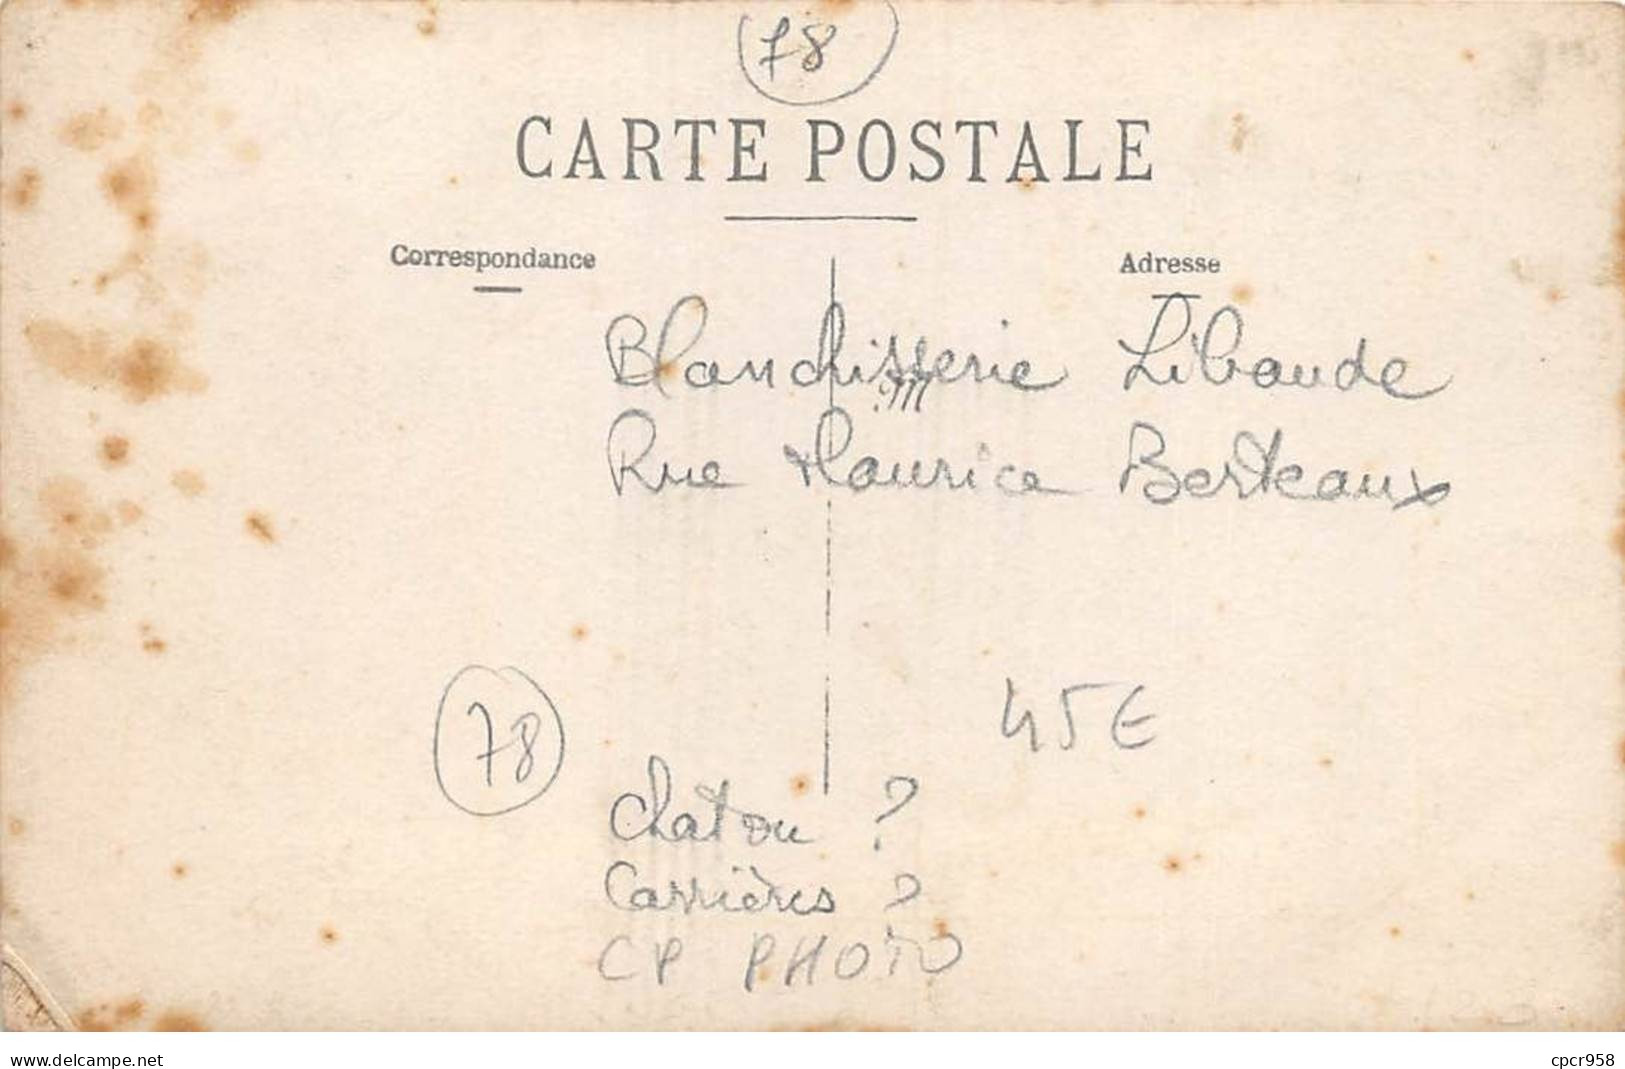 78
CARTE POSTALE
Correspondance
Adresse
Blanchisserie Libaude
M
Rue Maurice Berteaux
78
45€
Chatou ?
Carrières ?
CP PHOTO
www.delcampe.net
cpcr958